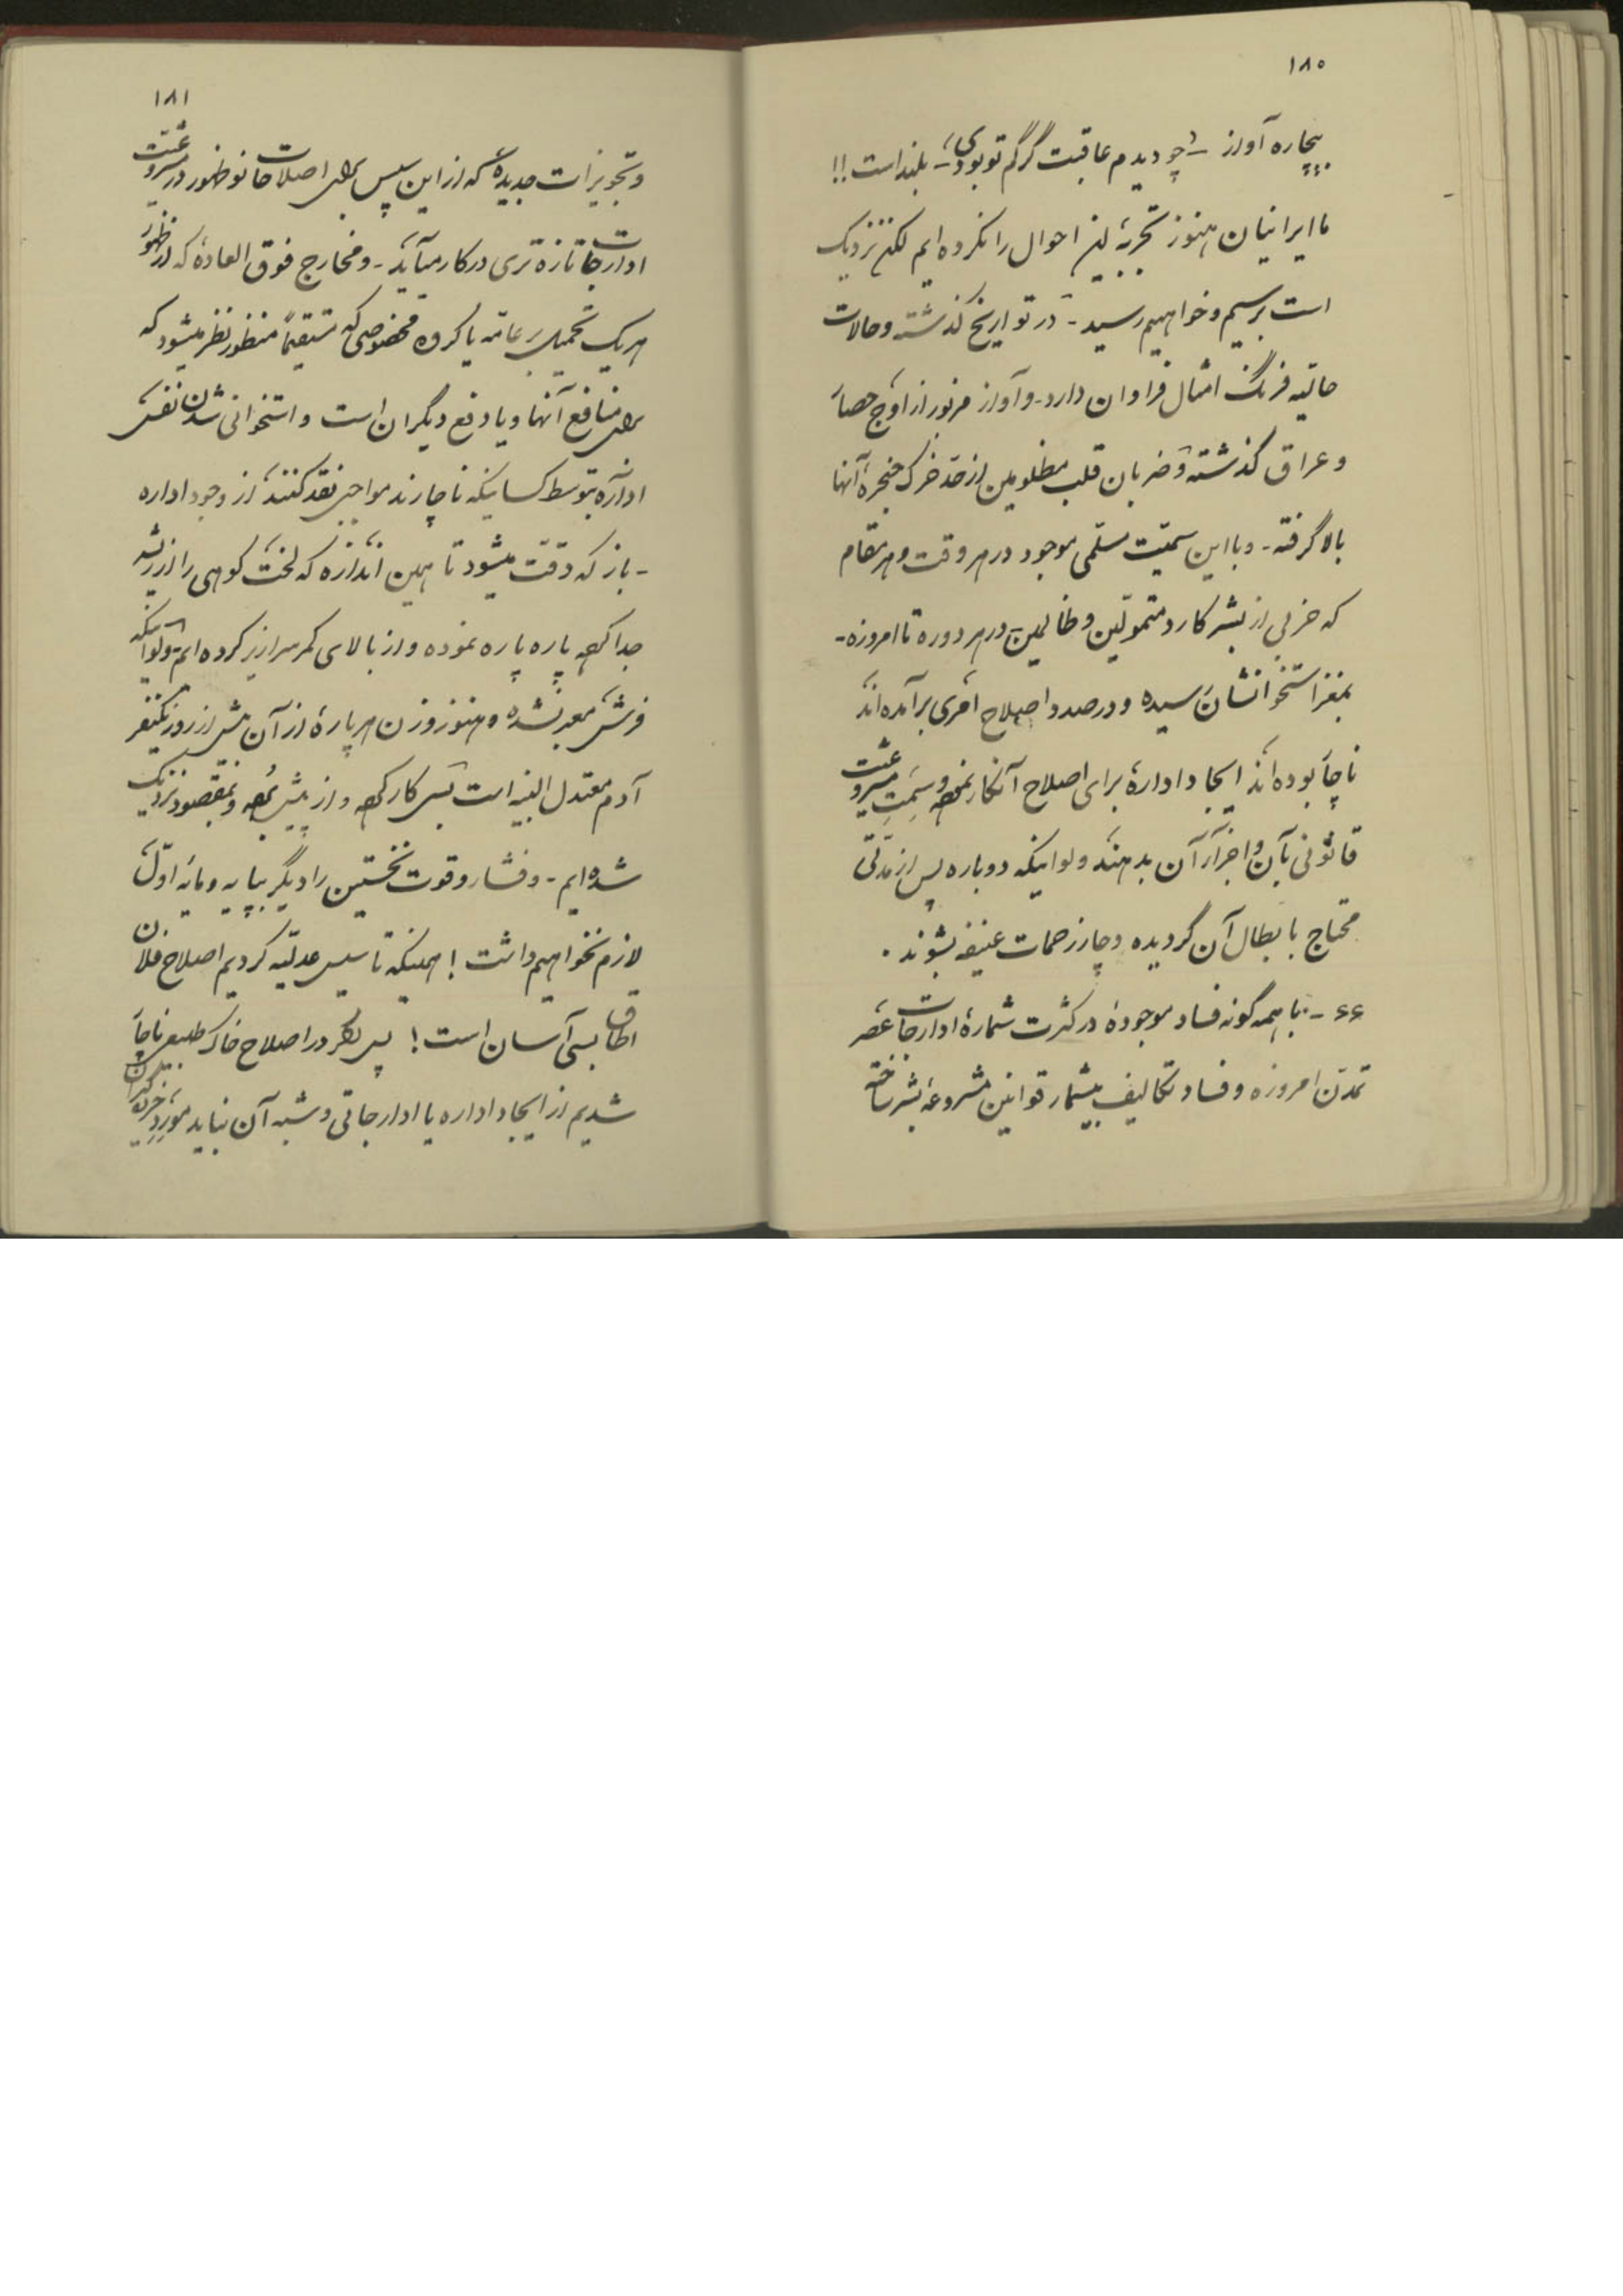 ۱۸۰
بیچاره آواز – چو دیدم عاقبت گرگم تو بودی – بلند است!!
ما ایرانیان هنوز تجربهٔ این احوال را نکرده ایم لکن نزدیک
است برسیم و خواهیم رسید - در تواریخ گذشته و حالات
حالیه فرنگ امثال فراوان دارد - و آواز مزبور از اوج حصار
و عراق گذشته و ضربان قلب مظلومین از حد خرک حنجرهٔ آنها
بالا گرفته - و با این سمیّت مسلمی موجود در هر وقت و هر مقام
که حزبی از بشر کارد متمولین و ظالمین در هر دوره تا امروزه -
بمغز استخوانشان رسیده و در صدد اصلاح امری برآمده اند
ناچار بوده اند ایجاد ادارهٔ برای اصلاح آنکار نموده و سِمَتِ مشروعیت
قانونی بآن و اجزاء آن بدهند ولو اینکه دوباره پس از مدتی
محتاج بابطال آن گردیده دچار زحمات عنیفه بشوند .
۶۶ - با همه گونه فساد موجودهٔ در کثرت شمارهٔ ادارجات عصر
تمدّن امروزه و فساد تکالیف بیشمار قوانین مشروعهٔ بشر ساخته
۱۸۱
و تجویزات جدیدهٔ که از این سپس برای اصلاحات نوظهور در مشروعیت
ادارجات تازه تری در کار میآید - و مخارج فوق العادهٔ که از ظهور
هر یک تحمیل بر عامّه یا گروه مخصوصی که مستقیماً منظور نظر میشود که
برای منافع آنها و یا دفع دیگران است و استخوانی شدن نفس
اداره بتوسط کسانیکه ناچارند مواجبی نقد کنند از وجود اداره
- باز که دقّت میشود تا همین اندازه که لخت کوهی را از ریشه
جدا کرده پاره پاره نموده و از بالای کمر سرازیر کرده ایم - ولو اینکه
فرش معبر نشده و هنوز وزن هر پارهٔ از آن بیش از زور یکنفر
آدم معتدل البنیه است بس کار کرده و از پیش برده و بمقصود نزدیک
شده ایم - و فشار و قوت نخستین را دیگر بپایه و مایهٔ اوّل
لازم نخواهیم داشت! همینکه تاسیس عدلیّه کردیم اصلاح فلان
اطاق بسی آسان است! پس اگر در اصلاح خاک طبیعی ناچار
شدیم از ایجاد اداره یا ادارجاتی و شبه آن نباید مورد خرده گیران